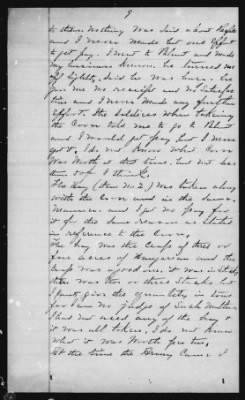 9
to them. Nothing was said about Rights
and I never made but one effort
to get pay. I went to Blunt and made
my business known. He turned me
off lightly. Said he was busy. He
gave me no receipt and no satisfac
tion and I never made any further
effort. The soldiers when taking
the Corn told me to go to Blunt
and I would get pay, but I never
got it. I do not know what Corn
was worth at that time, but not less
than 50¢ I think.
The Hay (Item No 2.) was taken along
with the Corn and in the same
manner and I got no pay for
it for the same reason as stated
in reference to the Corn.
The Hay was the Crop of three or
four acres of Hungarian and the
Crop was a good one. it was in Stack,
there was two or three Stacks but
I can't give the quantity in tons
for I am no judge of such matters
I had not used any of the hay &
it was all taken. I do not know
what it was worth per ton,
At the time the Army Came I